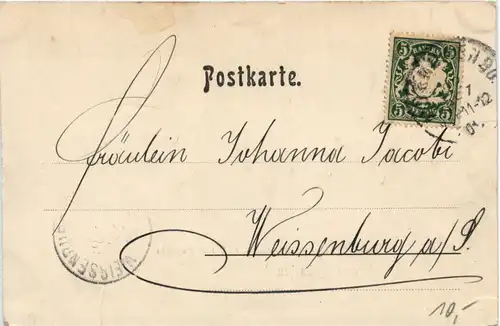 Postkarte.
5 BAYERN 5
5 5
Fräulein Johanna Jacobi
Weissenburg a/S.
WEISSENBU
10,-